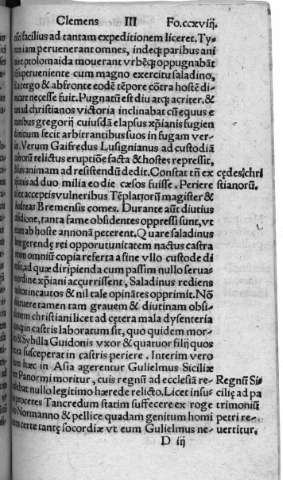 Clemens III Fo.ccxviij.
facilius ad tantam expeditionem liceret. Ty-
iam peruenerant omnes, indeq; paribus ani
ptolomaida mouerant vrbeq; oppugnabāt
perueniente cum magno exercitu saladino,
tergo & abfronte eodē tēpore cōtra hostē di-
necesse fuit. Pugnatū est diu atq; acriter, &
christianos victoria inclinabat cū equus e
gregorii cuiusdā elapsus xp̄ianis fugien
fecit arbitrantibus suos in fugam ver-
Verum Gaifredus Lusignianus ad custodiā
relictus eruptiōe facta & hostes repressit,
animam ad resistendū dedit. Constat tñ ex cędes chri
ad duo milia eo die cæsos fuisse. Periere stianorū.
acceptis vulneribus Tēplariorū magister &
Bremensis comes. Durante aūt diutius
dione, tanta fame obsidentes oppressi sunt, vt
ab hoste annonā peterent. Quare saladinus
gerendę rei opportunitatem nactus castra
omniū copia referta a sine vllo custode di
ad quæ diripienda cum passim nullo seruato
ordine xp̄iani acurrissent, Saladinus rediens
incautos & nil tale opinātes opprimit. Nō
tamen tam grauem & diutinam obsi-
christiani licet ad cętera mala dysenteria
in castris laboratum sit, quo quidem mor-
& Sybilla Guidonis vxor & quatuor filij quos
susceperat in castris periere. Interim vero
hæc in Asia agerentur Gulielmus Siciliæ
Panormi moritur, cuis regnū ad ecclesiā re- Regnū Si
nullo legitimo hærede relicto. Licet insu cilię ad pa
proceres Tancredum statim suffecere ex roge trimoniū
Normanno & pellice quadam genitum homi petri re-
certe tantę socordiæ vt eum Gulielmus ne- uertitur.
D iij